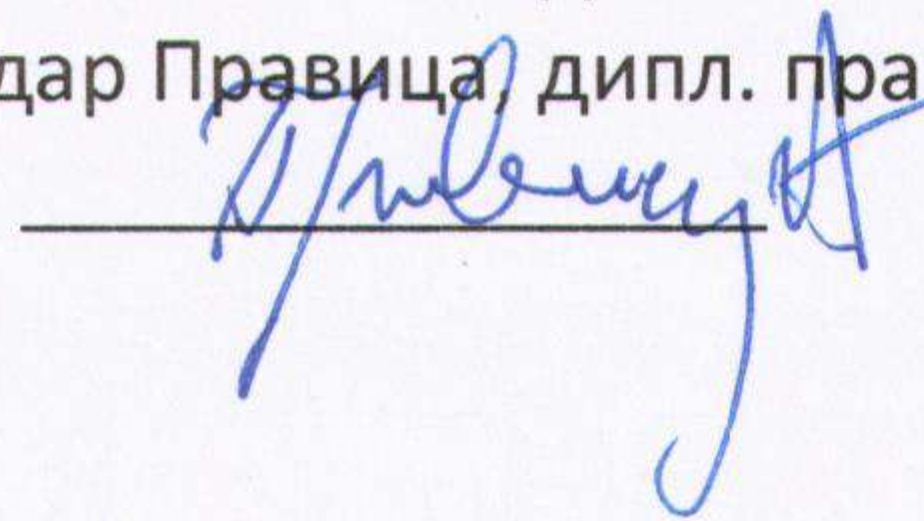 дар Правица, дипл. пра